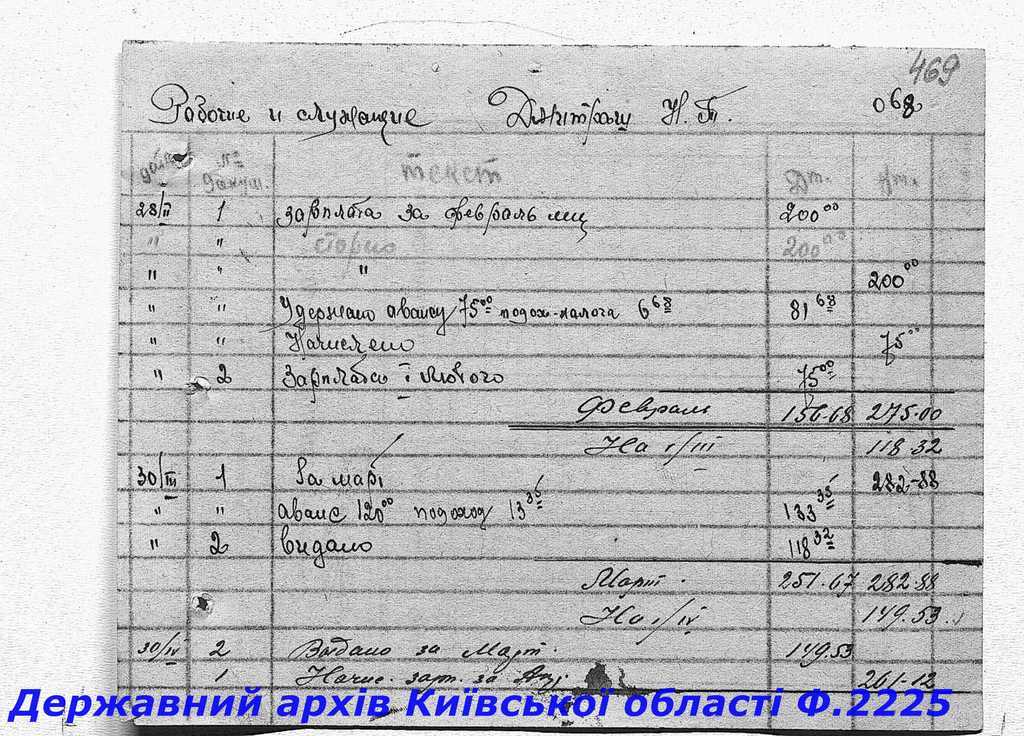 469
Рабочие и служащие Дмитраш Н. Т. 068
дата № докум. текст Дт. Кт.
28/II 1 зарплата за февраль м-ц 200 00
" " сторно 200 00
" " " 200 00
" " Удержано авансу 75 00 подох-налога 6 68 81 68
" " Начислено 75 00
" 2 Зарплата і лютого 75 00
Февраль 156.68 275.00
На 1/III 118.32
30/III 1 За март 282-88
" " аванс 120 00 подоход 13 35 133 35
" 2 видано 118 32
Март. 251.67 282.88
На 1/IV 149.53
30/IV 2 Выдано за Март. 149.53
1 Начис. зарп. за Апр. 261-12
Державний архів Київської області Ф.2225